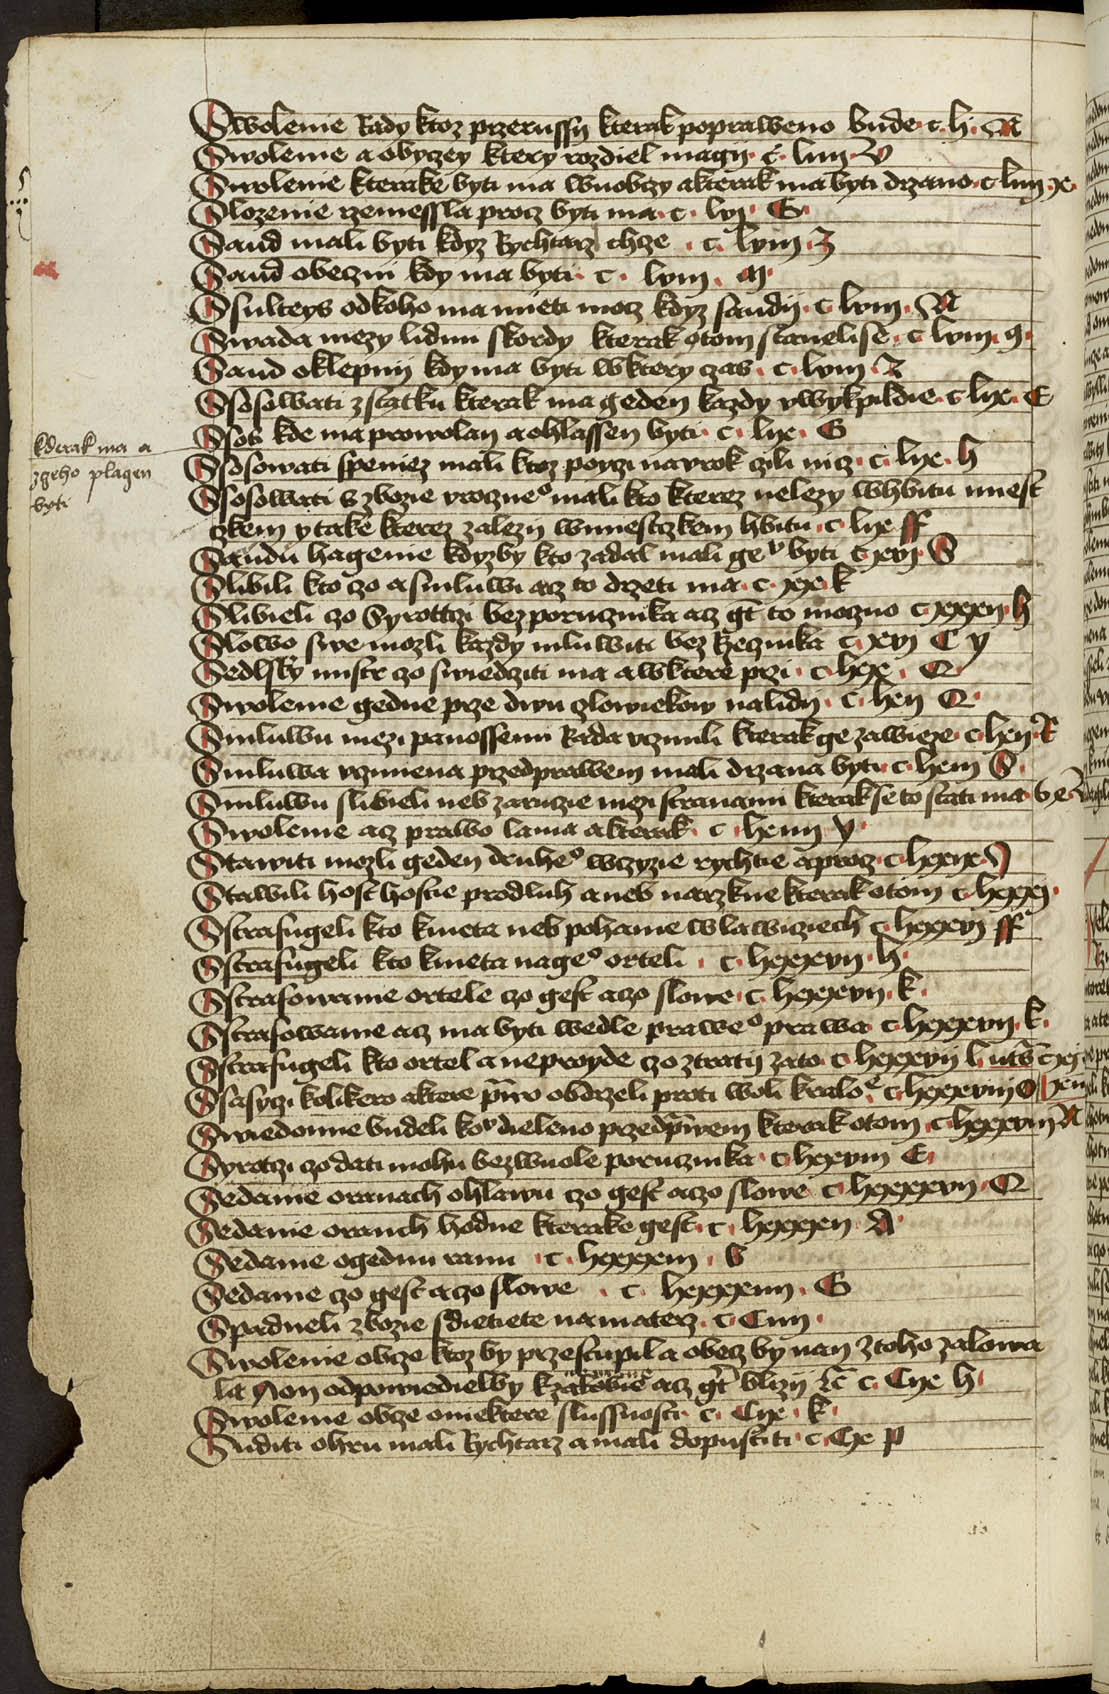 Swolenie Rady ktoz przerussy kterak popraweno bude c. lj. R
Swolenie a obyczey ktery rozdiel magij. c. liiij. V
Swolenie kterake byti ma wnobczy akterak ma byti drzano c liiij. x.
Slozenie rzemessla procz byti ma. c. lvj. G.
Saud mali byti kdyz Rychtarz chze. c. lviij. J
Saud obeczni kdy ma byti. c. lviij. m.
Ssulteys odkoho ma mieti mocz kdyz saudij. c lviij. N
Swada mezy lidmi skordy kterak otom stanelise. c lviij. q.
Saud oklepnij kdy ma byti wktery czas. c. lviij
Ssosowati zstatku kterak ma geden kazdy vwykpildie. c lix. E
Ssos kde ma prowolan a ohlassen byti. c. lix. G
kderak ma a
zgeho plagen
byti
Ssosowati speniez mali ktoz poyczi navrok czili nicz. c. lix. h
Ssosowati s zbozie vroczneo mali kto kterez nelezy whbitu miest
czkem ytake kterez zalezij wmiestczkem hbitu. c. lix ff
Saudu hagenie kdyzby kto zadal mali geu byti c xvj. S
Slibili kto czo a smluwi acz to drzeti ma. c. xx. k
Slibieli czo Syrotczi bez porucznika acz gt to moczno c xxxij. h
Slowo swe mozli kazdy mluwiti bez Rzecznika c. xvj C y
Sedlsky mistr czo swiedcziti ma a wktere przi. c. lxx. Q
Swolenie gedne prze dwu czlowiekow nalidij. c. lxij Q.
Smluwu mezi panossemi Rada vczinili kterak ge zawieze. c. lxij. R
Smluwa vczinena przedprawem mali drzana byti c. lxiij S.
Smluwu slibieli neb zaruczie mezi stranami kterak se to stati ma
Swolenie acz prawo lama akterak. c. lxiiij V.
Stawiti mozli geden druheo wczyzie rychtie aprocz. c. lxxix.
Stawili host hostie prodluh aneb narzkne kterak otom c. lxxxj.
Sstrafugeli kto kmeta neb pohanie wlawiciech c. lxxxvj ff
Sstrafugeli kto kmeta nageo orteli. c. lxxxvij. h.
Sstrafowanie ortele czo gest aczo slowe. c. lxxxvij. k.
Sstrafowanie acz ma byti wedle praweo prawa c. lxxxvij. k.
Sstrafugeli kto ortel a neproyde czo ztratij zato. c. lxxxvij l.
Ssasyczi kolikero aktere prawo obdrzeli proti woli kralo. c. lxxxviij O
Swiedomie budeli kou dieleno przedprawem kterak otom c lxxxviij R
Syrotczi czo dati mohu bezwuole porucznika. c. lxxviij E.
Sedanie oranach ohlawu czo gest aczo slowe c. lxxxxvij. Q
Sedanie oranich hodne kterake gest. c. lxxxxij A.
Sedanie ogednu ranu. c. lxxxxiij. b
Sedanie czo gest aczo slowe. c. lxxxxiiij. G
Spadneli zbozie sdietiete namaterz. c. Ciiij.
Swolenie obcze ktoz by przestupil a obecz by nan ztoho zalowa
la yon odpowiedielby kzalobie acz gt blizij c. Cix h.
Swolenie obcze oniektere slussnosti. c. Cix. k.
Suditi ohru mali Rychtarz amali dopustiti. c. Cx p